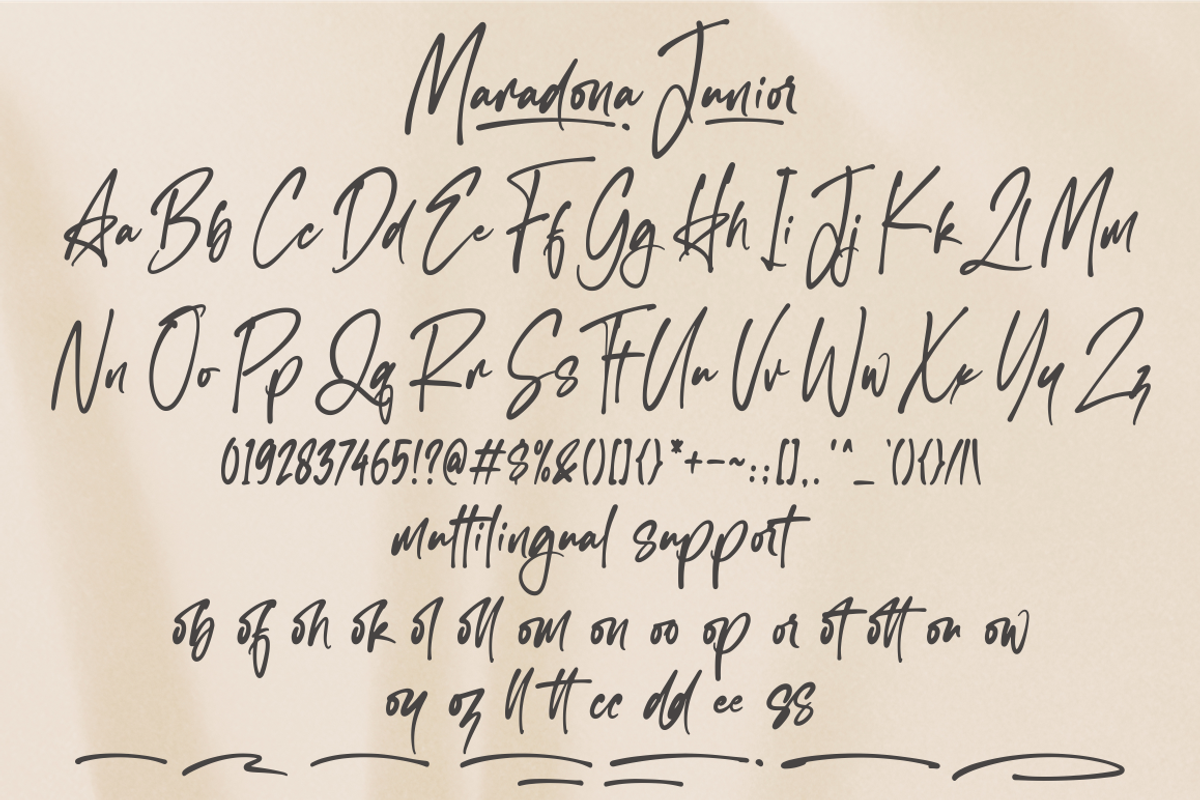 Maradona Junior
Aa Bb Cc Dd Ee Ff Gg Hh Ii Jj Kk Ll Mm
Nn Oo Pp Qq Rr Ss Tt Uu Vv Ww Xx Yy Zz
0192837465!?@#$%&()[]{}*+-~:;[],. '^_`(){}/|\
multilingual support
ob of oh ok ol oll om on oo op or ot ott ou ow
oy oz ll tt cc dd ee ss